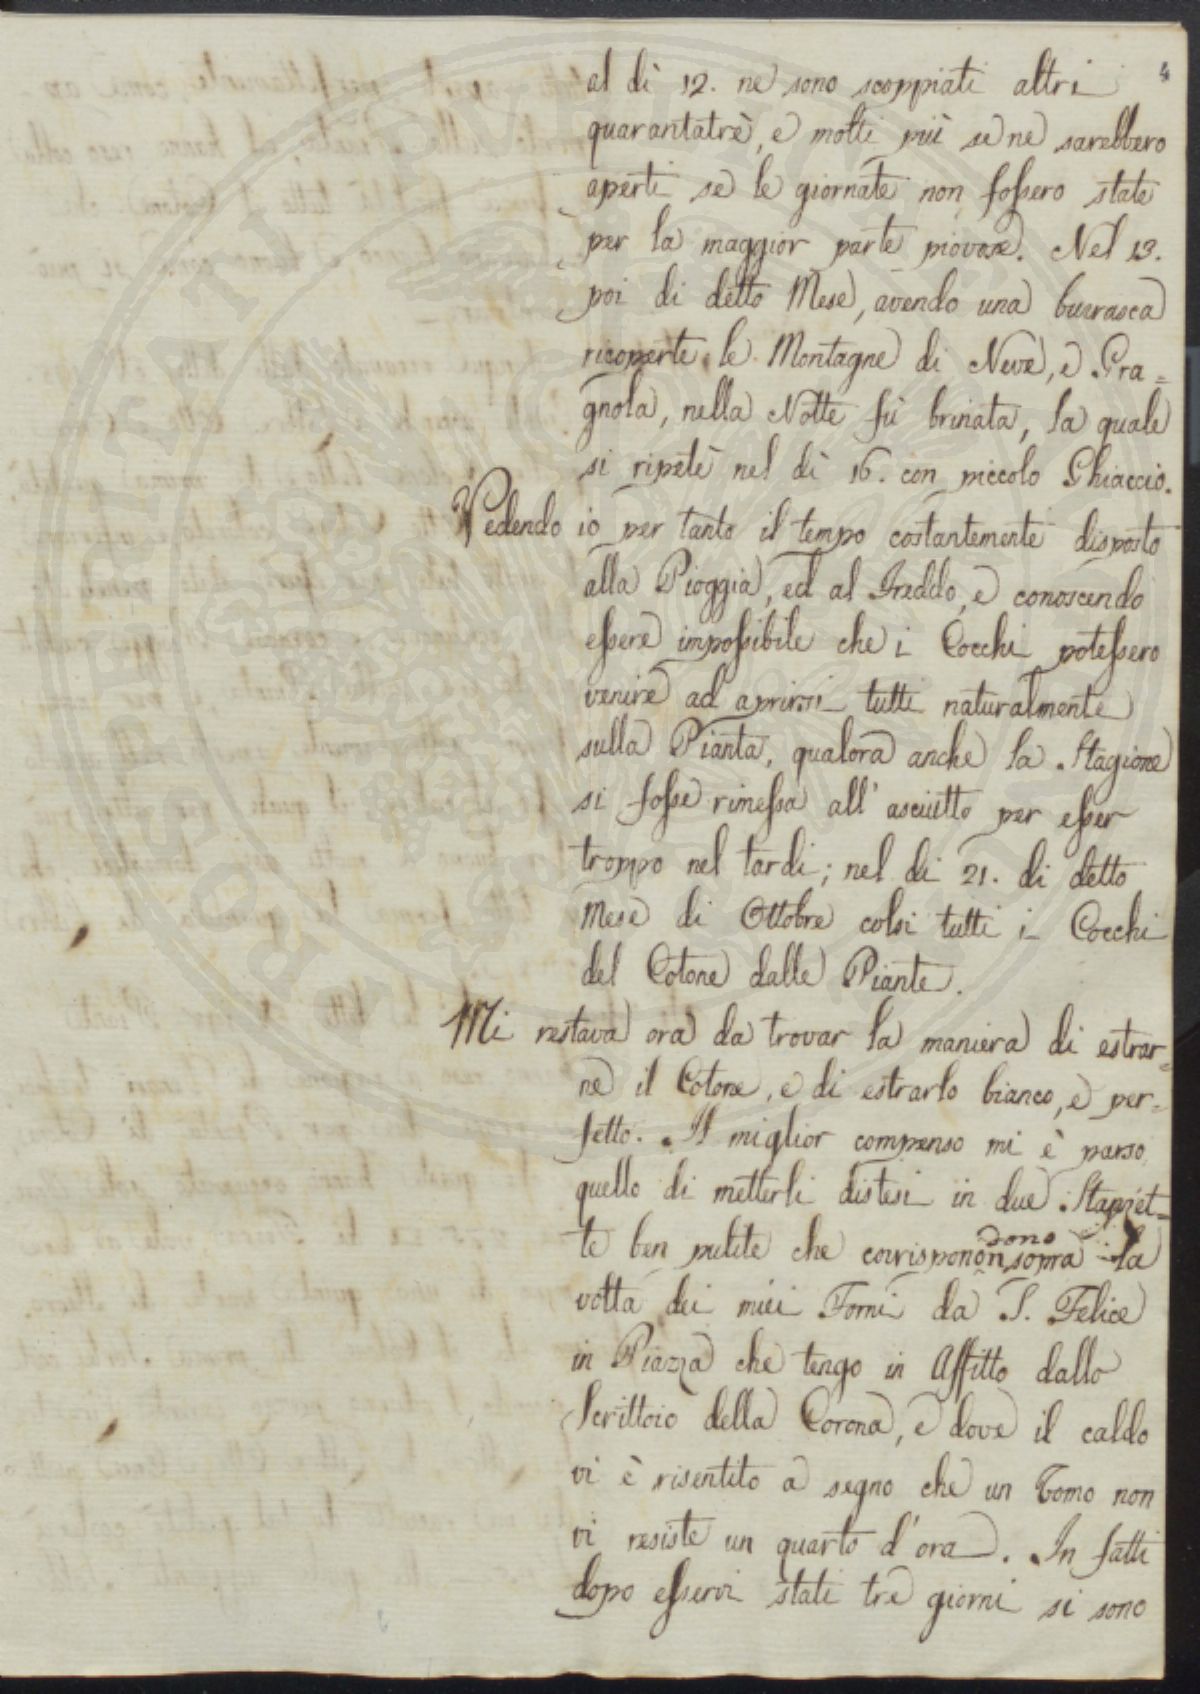 4
al dì 12. ne sono scoppiati altri
quarantatrè, e molti più se ne sarebbero
aperti se le giornate non fossero state
per la maggior parte piovose. Nel 13.
poi di detto Mese, avendo una burrasca
ricoperte le Montagne di Neve, e Gra=
gnola, nella Notte fù brinata, la quale
si ripetè nel dì 16. con piccolo Ghiaccio.
Vedendo io per tanto il tempo costantemente disposto
alla Pioggia, ed al Freddo, e conoscendo
essere impossibile che i Cocchi potessero
venire ad aprirsi tutti naturalmente
sulla Pianta, qualora anche la Stagione
si fosse rimessa all' asciutto per esser
troppo nel tardi; nel dì 21. di detto
Mese di Ottobre colsi tutti i Cocchi
del Cotone dalle Piante.
Mi restava ora da trovar la maniera di estrar=
ne il Cotone, e di estrarlo bianco, e per=
fetto. Il miglior compenso mi è parso
quello di metterli distesi in due Stanzet=
te ben pulite che corrispondono sopra la
volta dei miei Forni da S. Felice
in Piazza che tengo in Affitto dallo
Scrittoio della Corona, e dove il caldo
vi è risentito a segno che un Uomo non
vi resiste un quarto d'ora. In fatti
dopo esservi stati tre giorni si sono
POSTERITATI PVBLICAE PR